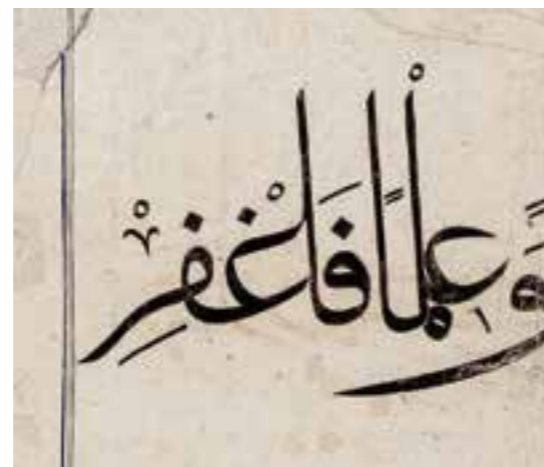 وَّعِلْمًا فَاغْفِرْ